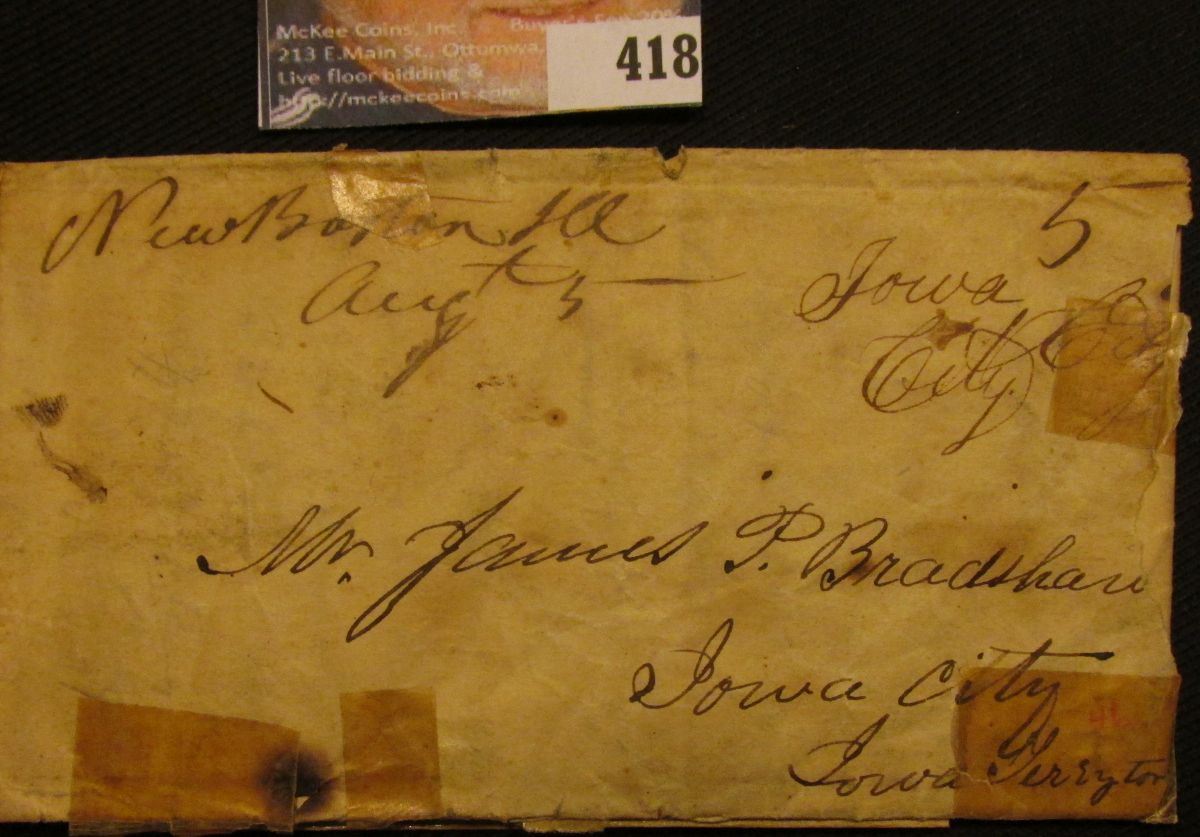 McKee Coins, Inc.
213 E.Main St., Ottumwa,
Live floor bidding &
http://mckeecoins.com
418
New Boston Ill
Augt 5
5
Iowa
City
Mr. James P. Bradshaw
Iowa City
Iowa Terrytor